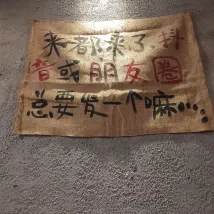 来都来了抖
音或朋友圈
总要发一个嘛……